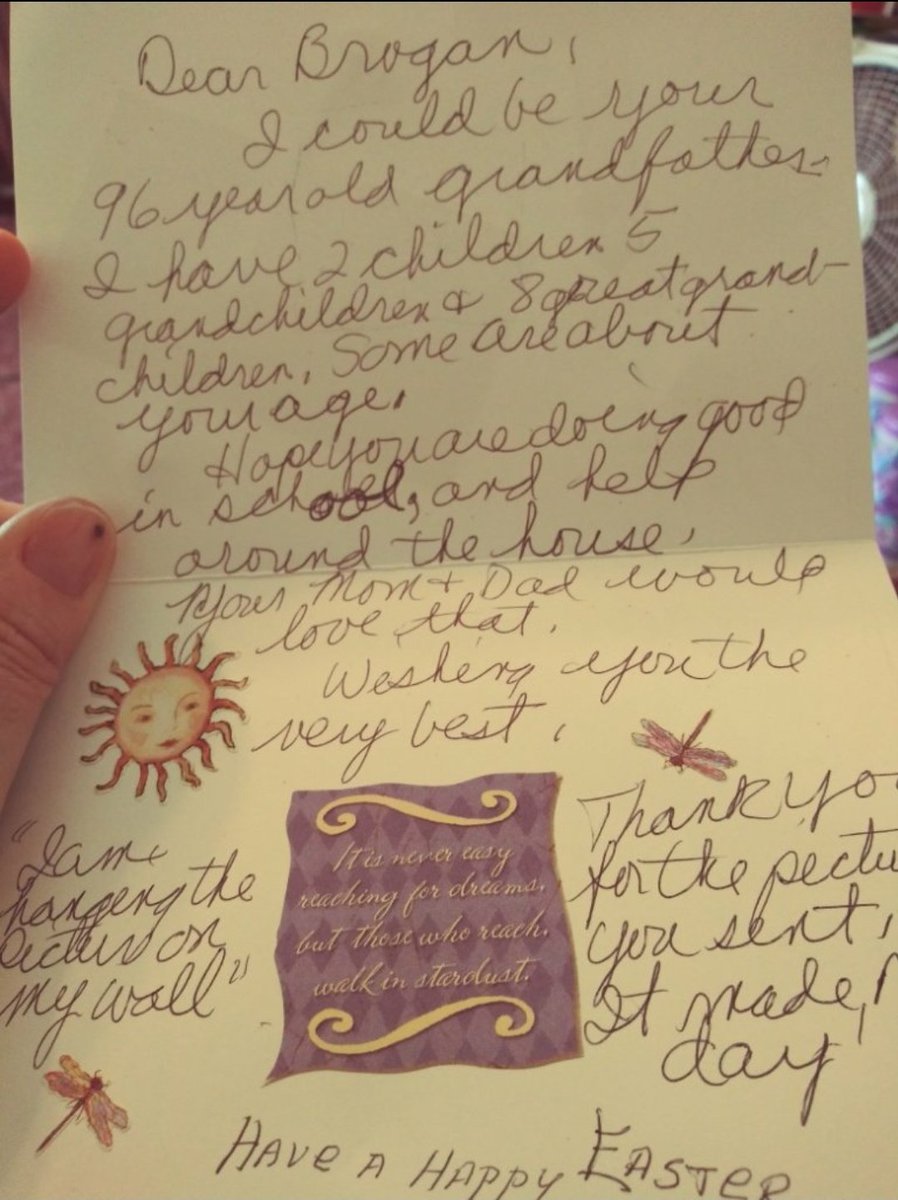 Dear Brogan,
I could be your
96 year old grandfather.
I have 2 children 5
grandchildren & 8 great grand-
children. Some are about
your age.
Hope you are doing good
in school, and help
around the house.
Your Mom + Dad would
love that.
Weshing you the
very best,
"I am
hangeng the
pecture on
my wall"
It is never easy
reaching for dreams,
but those who reach,
walk in stardust.
Thank yo
for the pectu
you sent,
It made
day
HAVE A HAPPY EASTER